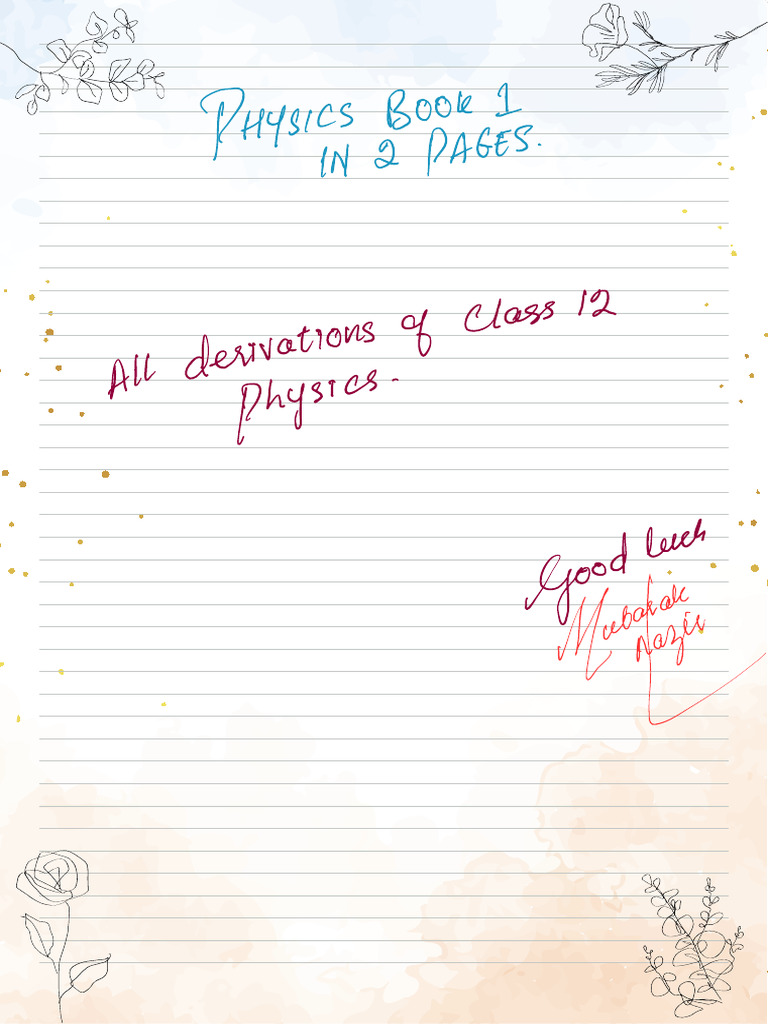 PHYSICS BOOK 1
IN 2 PAGES.
All derivations of Class 12
Physics.
Good luck
Mubarak
Nazir